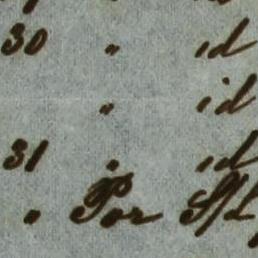 30 " id
" id
31 " id
" Por S/d